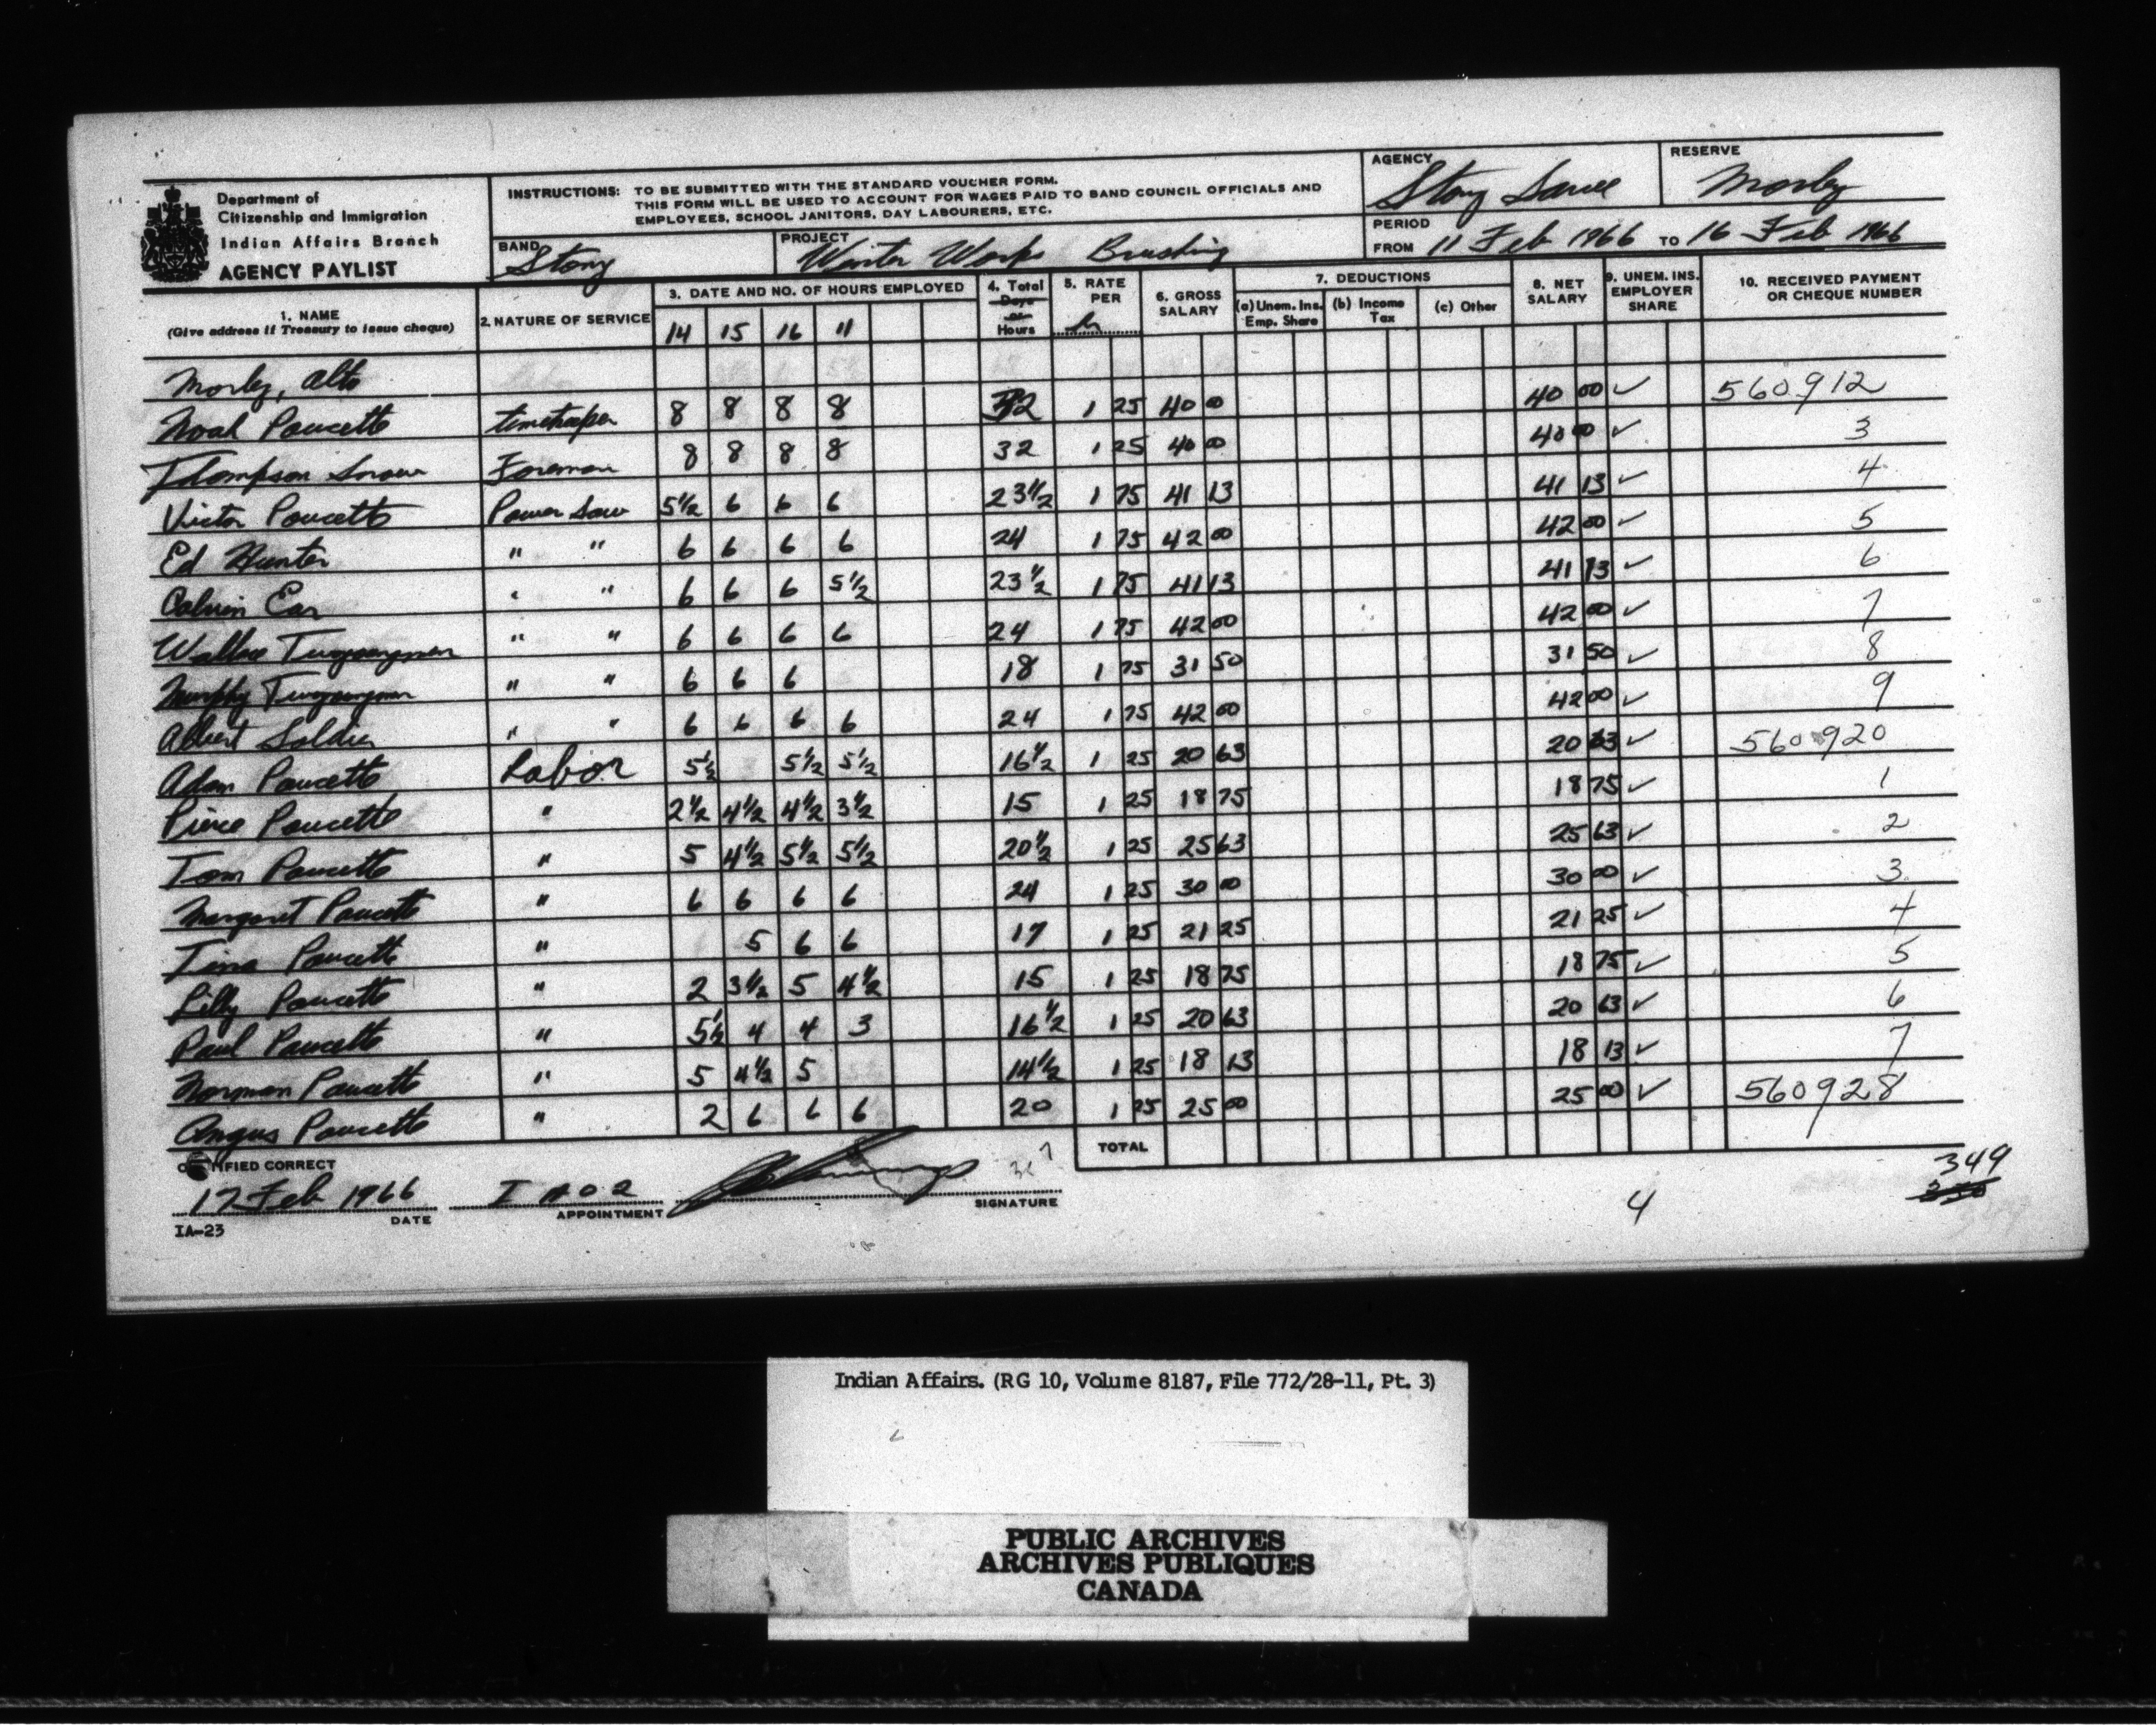 Department of
Citizenship and Immigration
Indian Affairs Branch
AGENCY PAYLIST
INSTRUCTIONS: TO BE SUBMITTED WITH THE STANDARD VOUCHER FORM.
THIS FORM WILL BE USED TO ACCOUNT FOR WAGES PAID TO BAND COUNCIL OFFICIALS AND
EMPLOYEES, SCHOOL JANITORS, DAY LABOURERS, ETC.
AGENCY Stony Sarcee
RESERVE Morley
BAND Stony
PROJECT Winter Works Brushing
PERIOD
FROM 11 Feb 1966 TO 16 Feb 1966
1. NAME
(Give address if Treasury to issue cheque)
2. NATURE OF SERVICE
3. DATE AND NO. OF HOURS EMPLOYED
14 15 16 11
4. Total
Days
or
Hours
5. RATE
PER
h
6. GROSS
SALARY
7. DEDUCTIONS
(a) Unem. Ins.
Emp. Share
(b) Income
Tax
(c) Other
8. NET
SALARY
9. UNEM. INS.
EMPLOYER
SHARE
10. RECEIVED PAYMENT
OR CHEQUE NUMBER
Morley, Alta
Noah Poucette timekeeper 8 8 8 8 32 1 25 40 00 40 00 ✓ 560912
Thompson Snow Foreman 8 8 8 8 32 1 25 40 00 40 00 ✓ 3
Victor Poucette Power Saw 5 1/2 6 6 6 23 1/2 1 75 41 13 41 13 ✓ 4
Ed Hunter " " 6 6 6 6 24 1 75 42 00 42 00 ✓ 5
Calvin Ear " " 6 6 6 5 1/2 23 1/2 1 75 41 13 41 13 ✓ 6
Wallace Twoyoungmen " " 6 6 6 6 24 1 75 42 00 42 00 ✓ 7
Murphy Twoyoungmen " " 6 6 6 18 1 75 31 50 31 50 ✓ 8
Albert Soldier " " 6 6 6 6 24 1 75 42 00 42 00 ✓ 9
Adam Poucette Labor 5 1/2 5 1/2 5 1/2 16 1/2 1 25 20 63 20 63 ✓ 560920
Pierce Poucette " 2 1/2 4 1/2 4 1/2 3 1/2 15 1 25 18 75 18 75 ✓ 1
Tom Poucette " 5 4 1/2 5 1/2 5 1/2 20 1/2 1 25 25 63 25 63 ✓ 2
Margaret Poucette " 6 6 6 6 24 1 25 30 00 30 00 ✓ 3
Tina Poucette " 5 6 6 17 1 25 21 25 21 25 ✓ 4
Lilly Poucette " 2 3 1/2 5 4 1/2 15 1 25 18 75 18 75 ✓ 5
Paul Poucette " 5 1/2 4 4 3 16 1/2 1 25 20 63 20 63 ✓ 6
Norman Poucette " 5 4 1/2 5 14 1/2 1 25 18 13 18 13 ✓ 7
Angus Poucette " 2 6 6 6 20 1 25 25 00 25 00 ✓ 560928
TOTAL
TIFIED CORRECT
17 Feb 1966
DATE
APPOINTMENT
SIGNATURE
IA-23
4
349
350
Indian Affairs. (RG 10, Volume 8187, File 772/28-11, Pt. 3)
PUBLIC ARCHIVES
ARCHIVES PUBLIQUES
CANADA